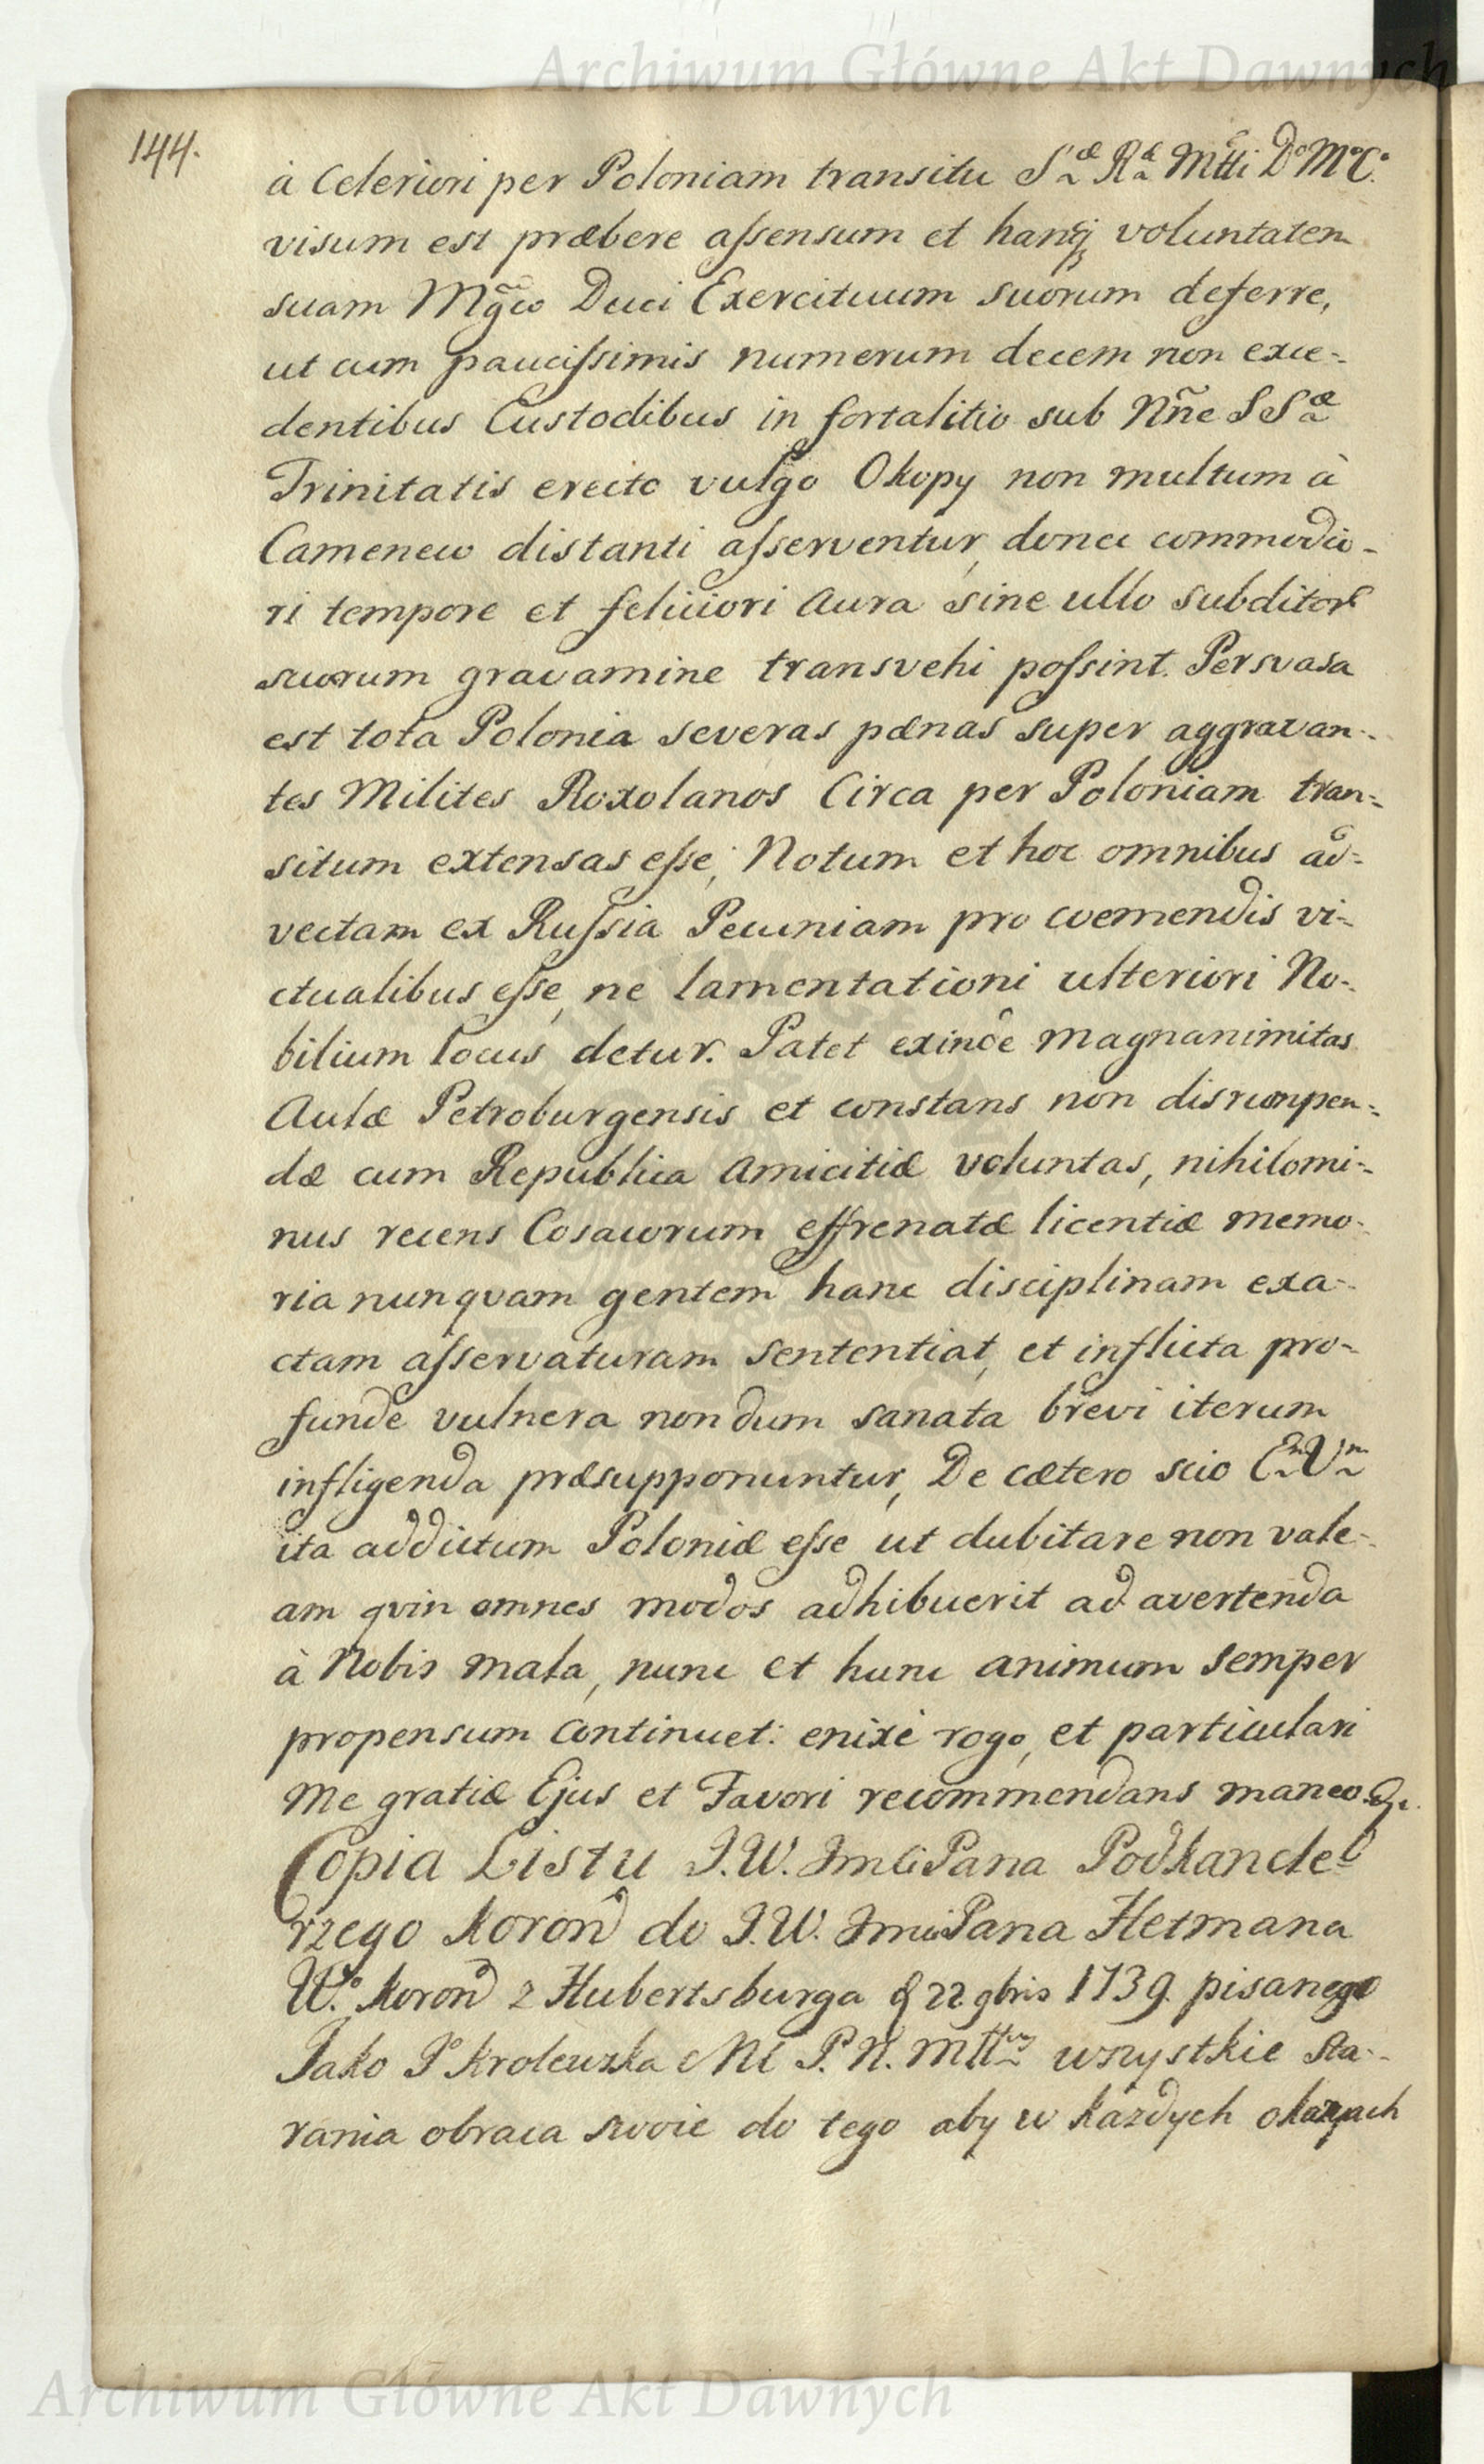 Archiwum Główne Akt Dawnych
144.
à Celeriori per Poloniam transitu S.æ R.æ Mtti D° M° C°
visum est præbere assensum et hanq; voluntatem
suam Mg̃co Duci Exercituum suorum deferre,
ut cum paucissimis numerum decem non exce-
dentibus Custodibus in fortalitio sub Nñe SS.æ
Trinitatis erecto vulgo Okopy non multum à
Cameneco distanti asserventur, donec commodio-
ri tempore et feliciori Aura sine ullo subditor
suorum gravamine transvehi possint. Persvasa
est tota Polonia severas pænas super aggravan-
tes Milites Roxolanos Circa per Poloniam tran-
situm extensas esse, Notum et hoc omnibus ad-
vectam ex Russia Pecuniam pro coemendis vi-
ctualibus esse, ne lamentationi ulteriori No-
bilium locus detur. Patet exinde magnanimitas
Aulæ Petroburgensis et constans non disrumpen-
dæ cum Republica Amicitiæ voluntas, nihilomi-
nus recens Cosacorum effrenatæ licentiæ memo-
ria nunquam gentem hanc disciplinam exa-
ctam asservaturam sententiat, et inflicta pro-
funde vulnera nondum sanata brevi iterum
infligenda præsupponuntur, De cætero scio E.m V.m
ita addictum Poloniæ esse ut dubitare non vale-
am qvin omnes modos adhibuerit ad avertenda
à Nobis mala, nunc et hunc animum semper
propensum continuet: enixè rogo, et particulari
Me gratiæ Ejus et Favori recommendans maneo &c.
Copia Listu J.W. Jmći Pana Podkancle-
rzego Koron do J.W. Jmći Pana Hetmana
W.° Koron z Hubertsburga d 22 gbris 1739. pisanego
Jako J° Krolewska Mć P. N. Mttwy wszystkie sta-
rania obraca swoie do tego aby w każdych okazyach
Archiwum Główne Akt Dawnych